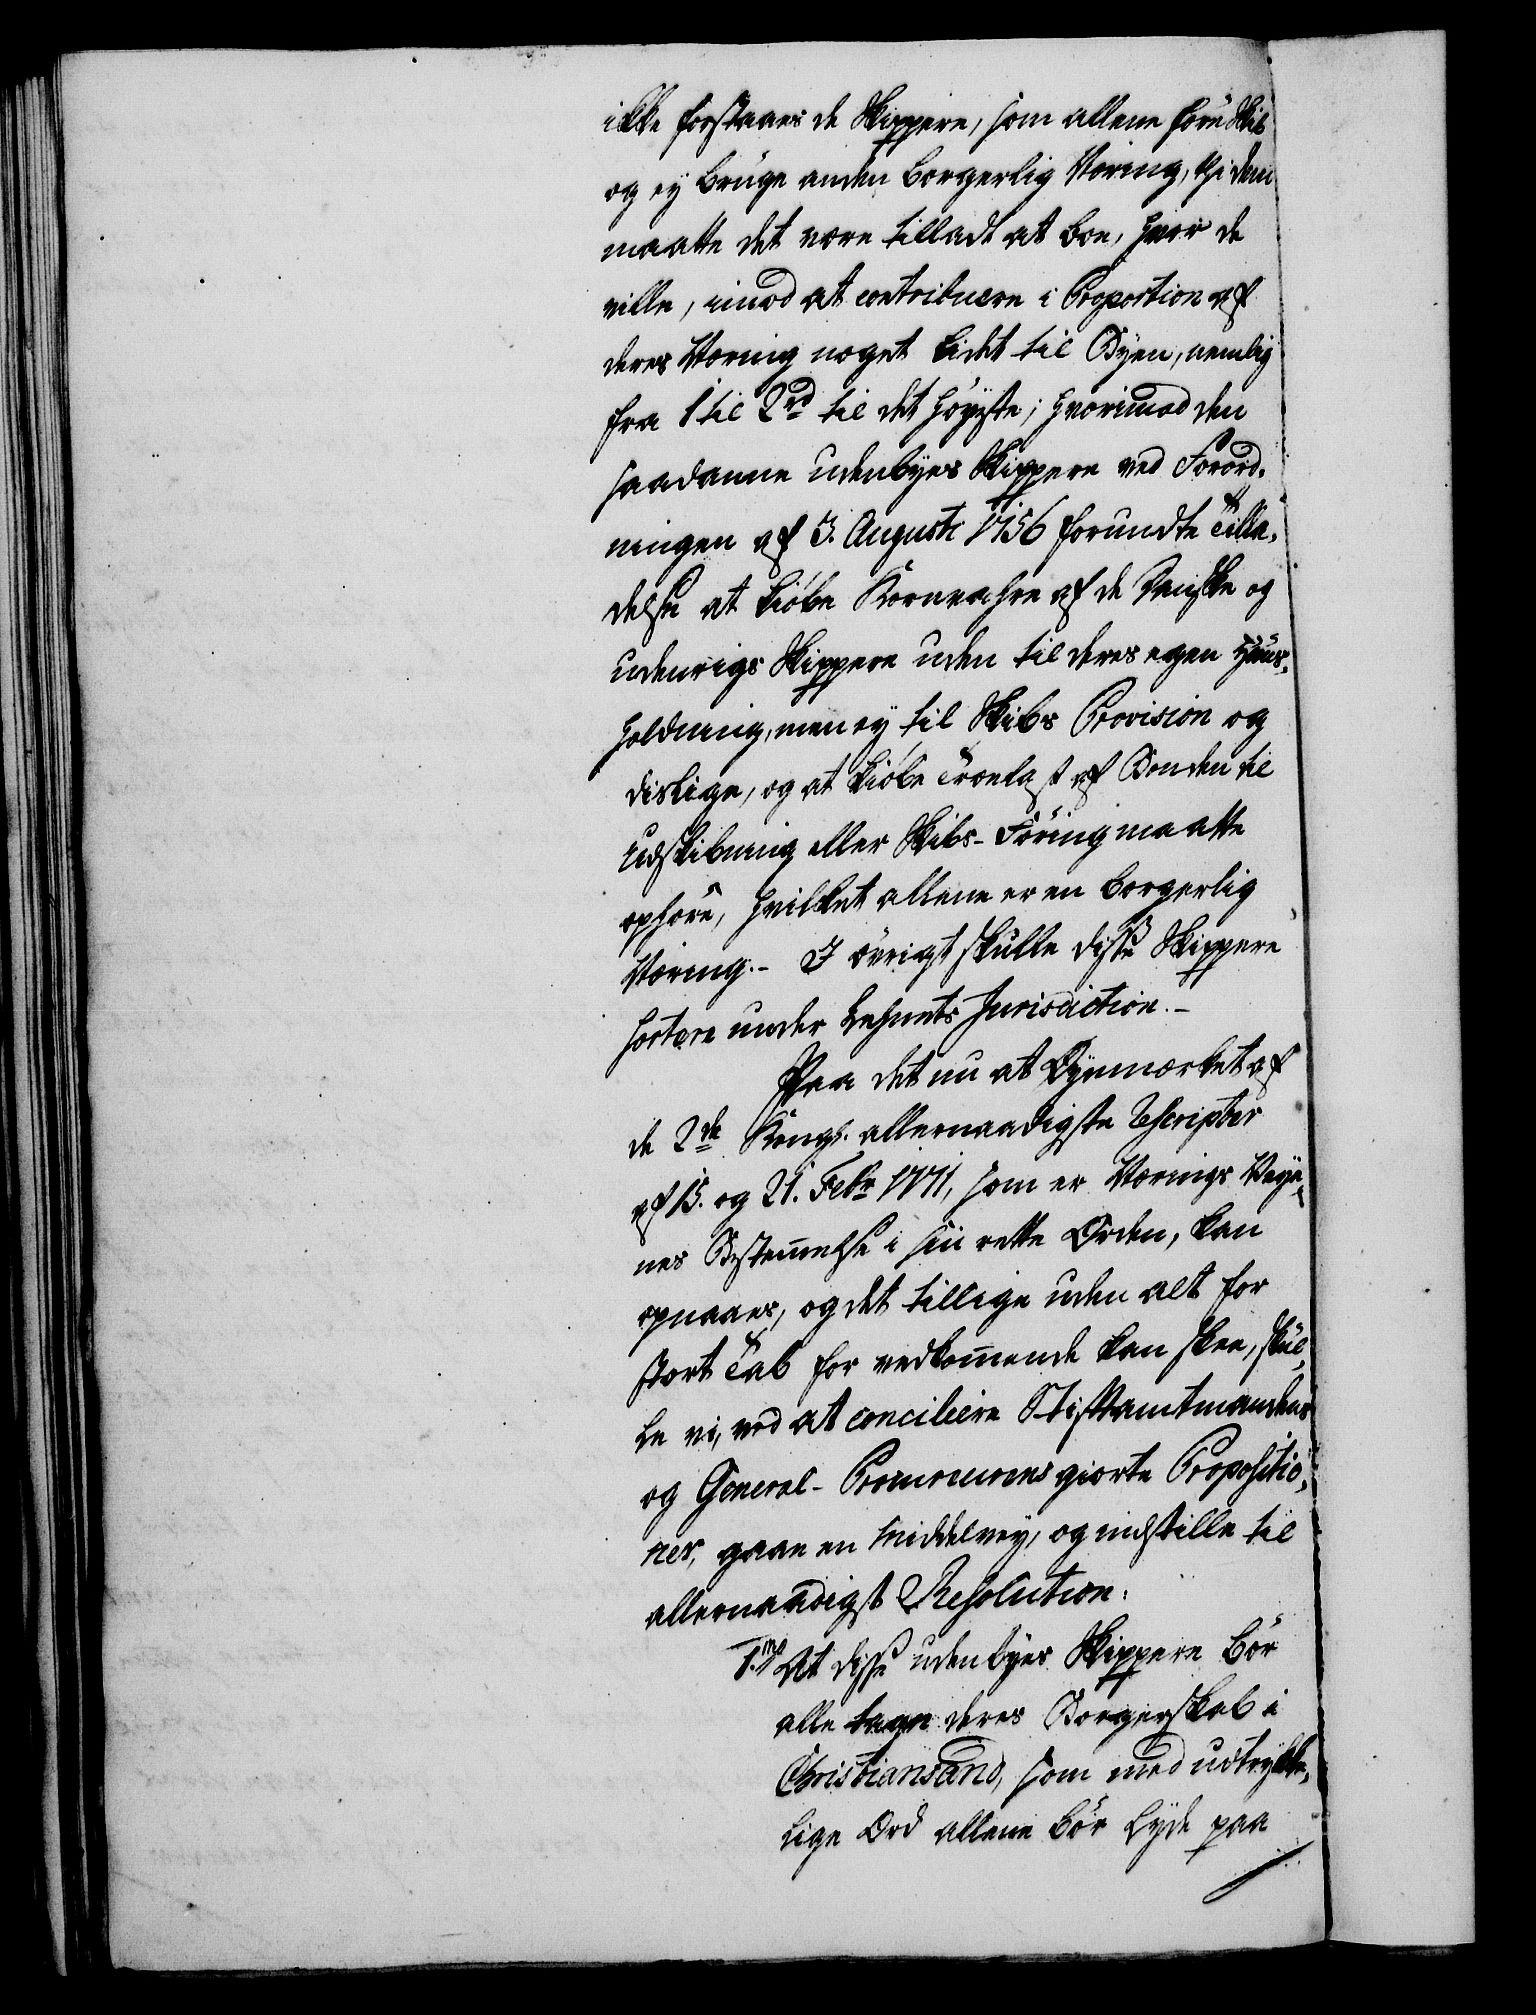 ikke forstaaes de Skippere, som allene före Skib
og ey bruge anden borgerlig Næring, thi dem
maatte det være tilladt at boe, hvor de
ville, imod at contribuere i Proportion af
deres Næring noget lidet til Byen, nemlig
fra 1 til 2 rd til det höyeste; hvorimod den
saadanne udenbyes Skippere ved Forord-
ningen af 3. Augusti 1756 forundte Tilla-
delse at kiöbe Kornvahre af de Danske og
udenrigs Skippere uden til deres egen Huus-
holdning, men ey til Skibs Provision og
deslige, og at kiöbe Trælast af Bonden til
Udskibning eller Skibs-Föring maatte
ophöre, hvilket allene er en borgerlig
Næring. - I övrigt skulle disse Skippere
sortere under Lehnets Jurisdiction. -
Paa det nu at Öyemærket af
de 2de Kongl. allernaadigste Rescripter
af 15. og 21. Febr 1771, som er Nærings Veye-
nes Bestem̅else i sin rette Orden, kan
opnaaes, og det tillige uden alt for
stort Tab for vedkom̅ende kan skee, skul-
le vi, ved at conciliere Stiftamtmandens
og General- giorte Propositio-
ner, gaae en Middelvey, og indstille til
allernaadigst Resolution.
1.mo At disse udenbyes Skippere bör
alle tage deres Borgerskab i
Christiansand, som med udtrykke-
lige Ord allene bör lyde paa